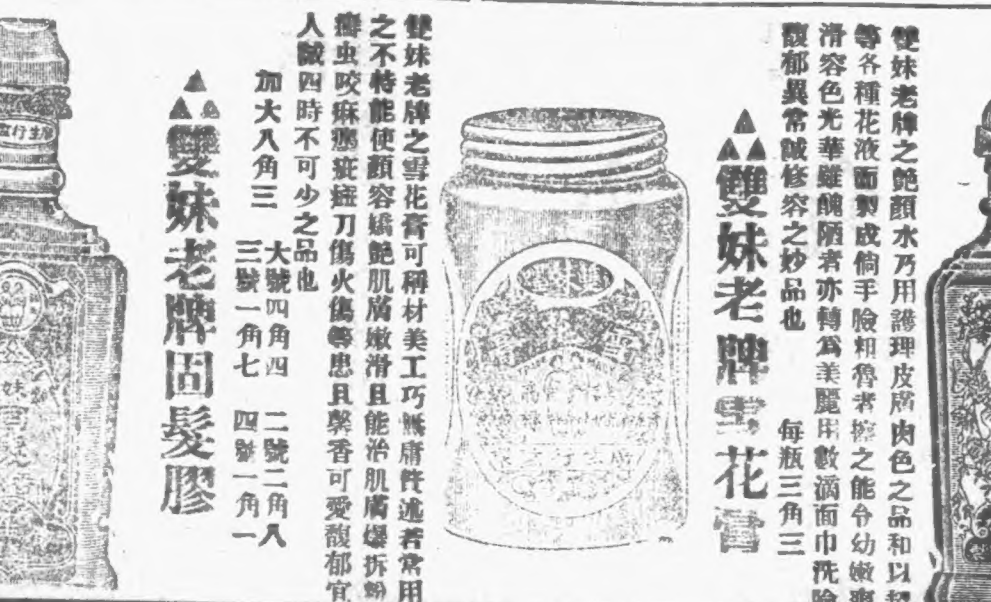 雙妹老牌之艷顏水乃用護理皮膚肉色之品和以
等各種花液而製成倘手臉粗魯者擦之能令幼嫩
滑容色光華雖醜陋者亦轉為美麗用數滴面巾洗臉
馥郁異常誠修容之妙品也 每瓶三角三
雙妹老牌雪花膏
雙妹老牌之雪花膏可稱材美工巧無庸贅述若常用
之不特能使顏容嬌艷肌膚嫩滑且能治肌膚爆拆
虫咬麻刀傷火傷等患且馨香可愛馥郁宜
人誠四時不可少之品也
大號四角四 二號二角八
加大八角三 三號一角七 四號一角一
雙妹老牌固髮膠